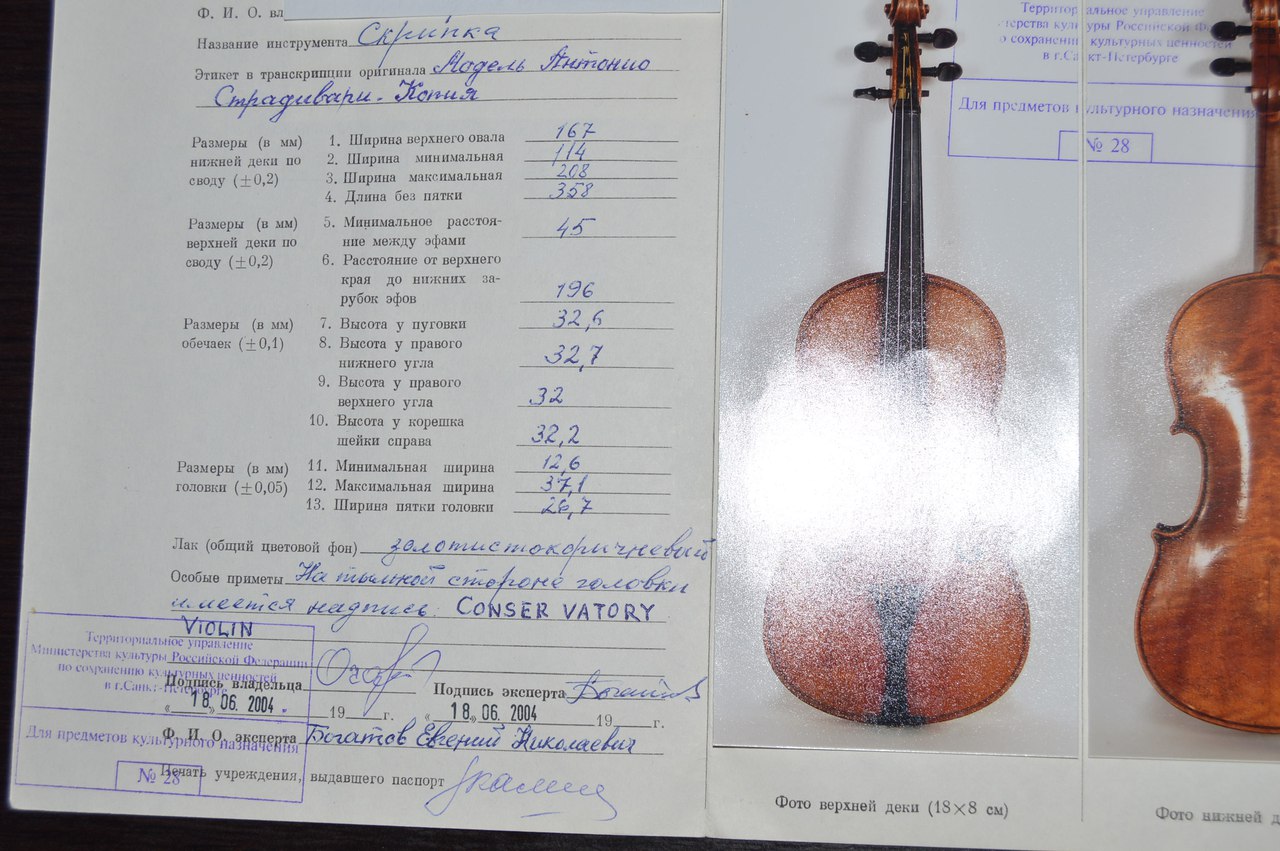 Ф. И. О. вл
Название инструмента Скрипка
Этикет в транскрипции оригинала Модель Антонио
Страдивари. Копия
Размеры (в мм) нижней деки по своду (±0,2)
1. Ширина верхнего овала 167
2. Ширина минимальная 114
3. Ширина максимальная 208
4. Длина без пятки 358
Размеры (в мм) верхней деки по своду (±0,2)
5. Минимальное расстоя-
ние между эфами 45
6. Расстояние от верхнего
края до нижних за-
рубок эфов 196
Размеры (в мм) обечаек (±0,1)
7. Высота у пуговки 32,6
8. Высота у правого
нижнего угла 32,7
9. Высота у правого
верхнего угла 32
10. Высота у корешка
шейки справа 32,2
Размеры (в мм) головки (±0,05)
11. Минимальная ширина 12,6
12. Максимальная ширина 37,1
13. Ширина пятки головки 26,7
Лак (общий цветовой фон) золотистокоричневый
Особые приметы На тыльной стороне головки
имеется надпись: CONSERVATORY
VIOLIN
Территориальное управление
Министерства культуры Российской Федерации
по сохранению культурных ценностей
в г.Санкт-Петербурге
Для предметов культурного назначения
№ 28
Подпись владельца
Подпись эксперта Богатов
« 18 » 06. 2004 19 г. « 18 » 06. 2004 19 г.
Ф. И. О. эксперта Богатов Евгений Николаевич
Печать учреждения, выдавшего паспорт
Территориальное управление
терства культуры Российской Ф
о сохранению культурных ценностей
в г.Санкт-Петербурге
Для предметов культурного назначения
№ 28
Фото верхней деки (18×8 см)
Фото нижней д